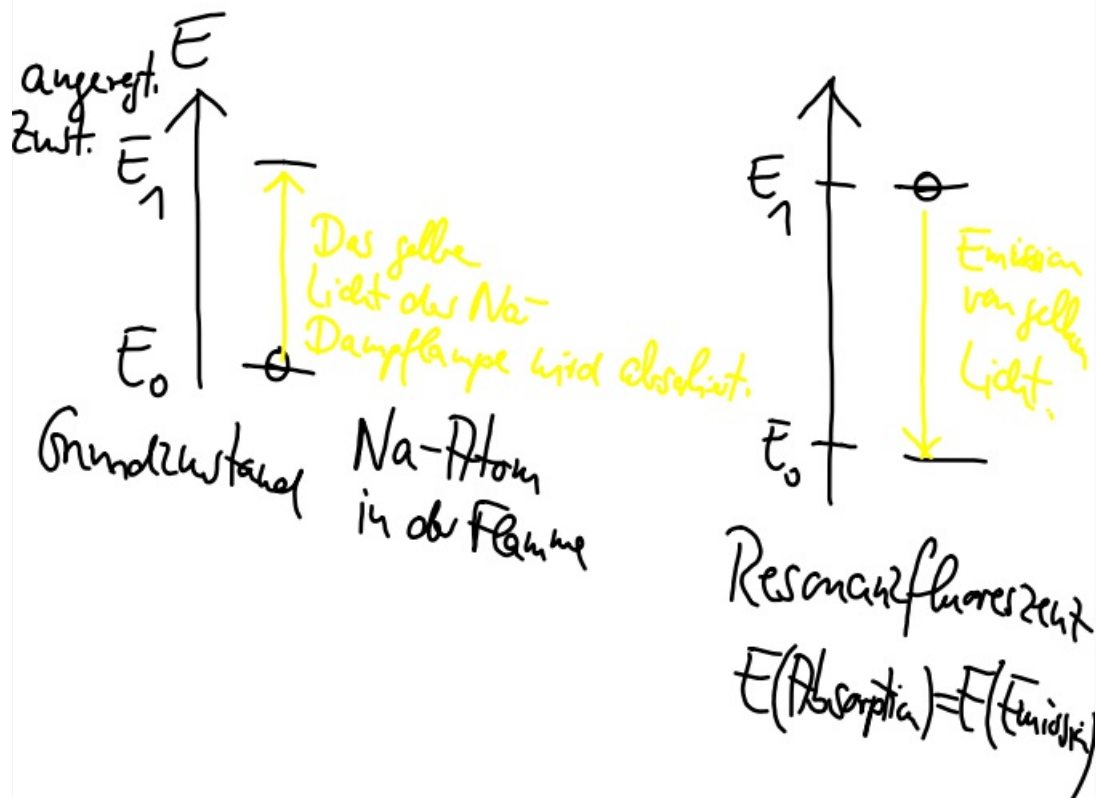 E
angeregt.
Zust.
E1
Das gelbe
Licht der Na-
Dampflampe wird absorbiert.
E0
Grundzustand
Na-Atom
in der Flamme
E1
Emission
von gelbem
Licht.
E0
Resonanzfluoreszenz
E(Absorption)=E(Emission)